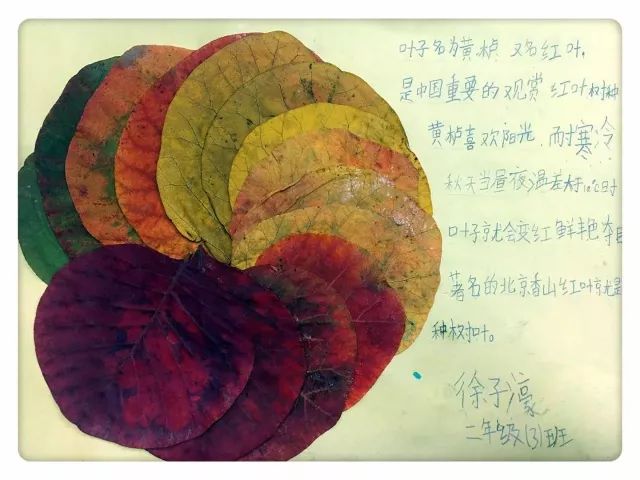 叶子名为黄栌 又名红叶,
是中国重要的观赏红叶树种
黄栌喜欢阳光,耐寒冷
秋天当昼夜温差大于10℃时
叶子就会变红 鲜艳夺目
著名的北京香山红叶就是
种树叶。
徐子濠
二年级(3)班